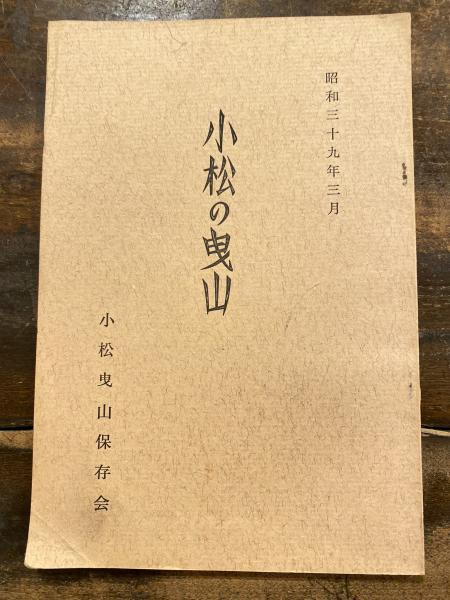 昭和三十九年三月
小松の曳山
小松曳山保存会